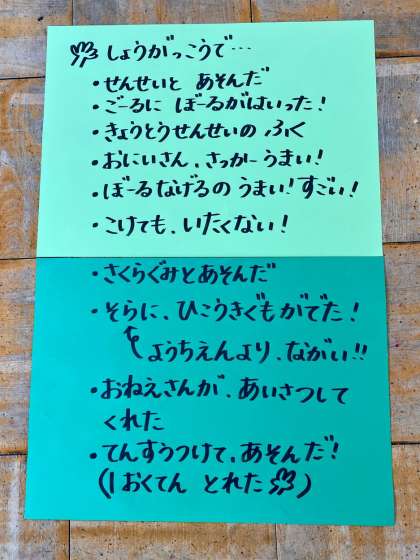 しょうがっこうで…
・せんせいと あそんだ
・ごーるに ぼーるがはいった!
・きょうとうせんせいの ふく
・おにいさん、さっかーうまい!
・ぼーるなげるの うまい!すごい!
・こけても、いたくない!
・さくらぐみとあそんだ
・そらに、ひこうきぐもがでた!
ようちえんより、ながい!!
・おねえさんが、あいさつして
くれた
・てんすうつけて、あそんだ!
(1おくてん とれた)